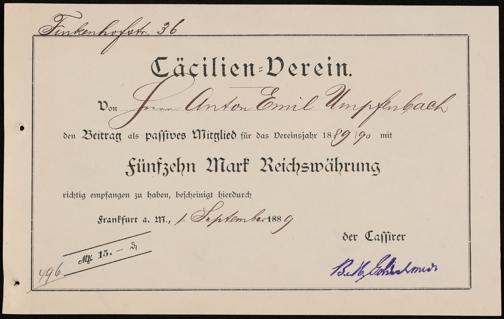 Finkenhofstr. 36
Cäcilien=Verein.
Von Herrn Anton Emil Umpfenbach
den Beitrag als passives Mitglied für das Vereinsjahr 1889/90 mit
Fünfzehn Mark Reichswährung
richtig empfangen zu haben, bescheinigt hierdurch
Frankfurt a. M., 1. September 1889
der Cassirer
Mk. 15. — ₰
496